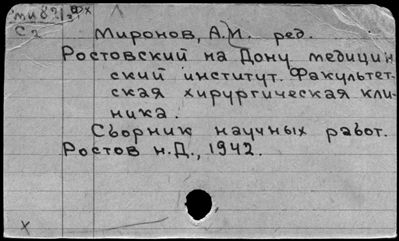 С2
Миронов, А.И. ред.
Ростовский на Дону медицин
ский институт. Факультет-
ская хирургическая кли-
ника.
Сборник научных работ.
Ростов н.Д., 1942.
х